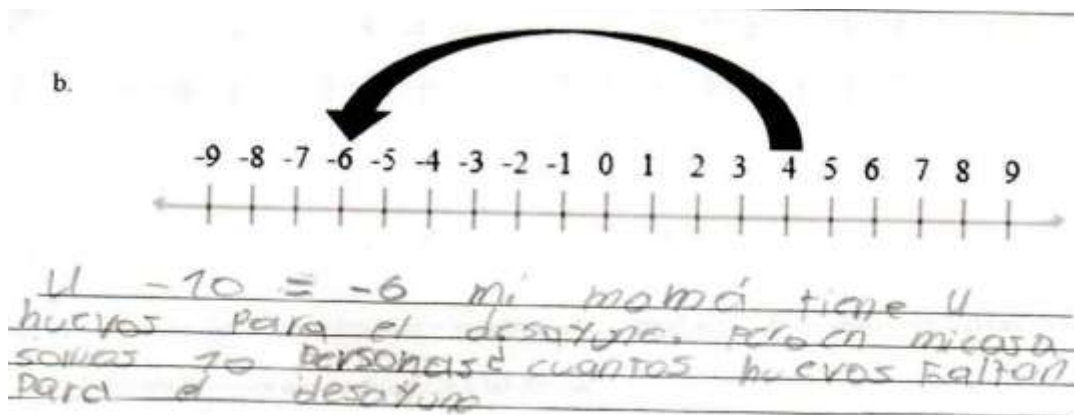 b.
-9 -8 -7 -6 -5 -4 -3 -2 -1 0 1 2 3 4 5 6 7 8 9
4 -10 = -6 mi mamá tiene 4
huevos para el desayuno. Pero en micasa
somos 10 personas ¿ cuantos huevos Faltan
para el desayuno